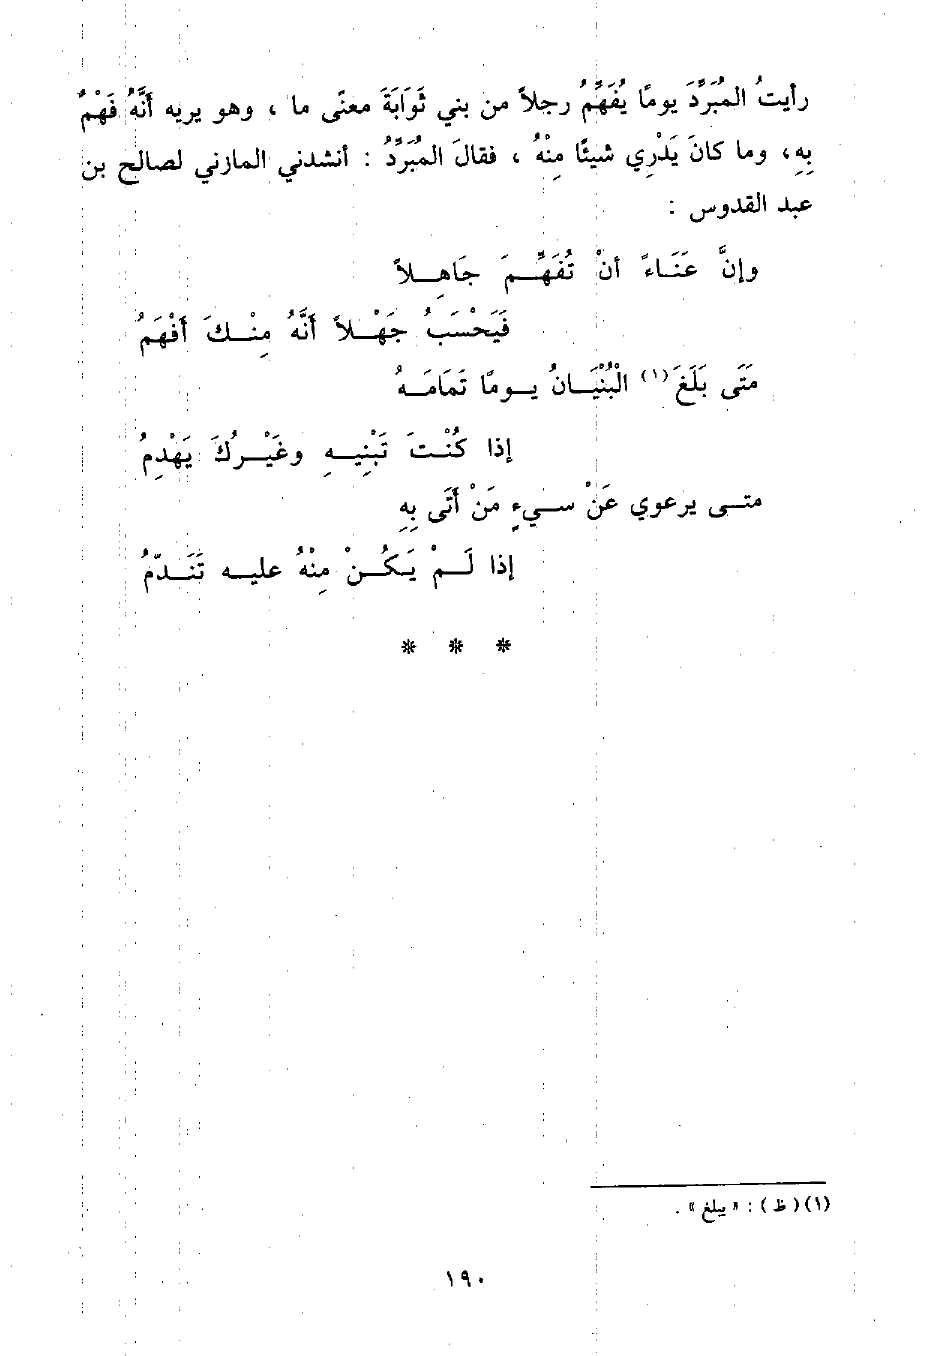 رأيتُ المُبَرِّدَ يومًا يُفَهِّمُ رجلاً من بني ثَوَابَةَ معنًى ما ، وهو يريه أنَّهُ فَهْمٌ
بِهِ، وما كانَ يَدْرِي شيئًا مِنْهُ ، فقالَ المُبَرِّدُ : أنشدني المازني لصالح بن
عبد القدوس :
وإنَّ عَنَــاءً أنْ تُفَهِّــمَ جَاهِــلاً
فَيَحْسَبُ جَهْــلاً أَنَّهُ مِنْــكَ أَفْهَمُ
مَتَى بَلَغَ(١) الْبُنْيَــانُ يــومًا تَمَامَــهُ
إذا كُنْــتَ تَبْنِيــهِ وغَيْــرُكَ يَهْدِمُ
متــى يرعوي عَنْ ســيءٍ مَنْ أَتَى بِهِ
إذا لَــمْ يَكُــنْ مِنْهُ عليــه تَنَــدّمُ
* * *
(١) (ظ) : « يبلغ » .
١٩٠